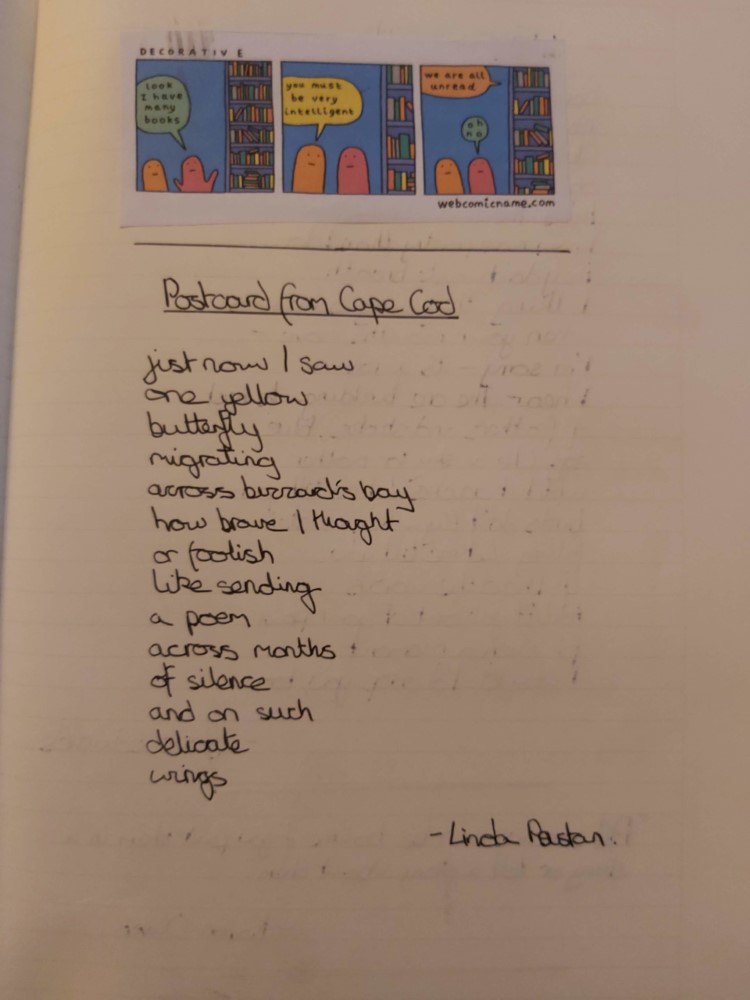 DECORATIVE
look
I have
many
books
you must
be very
intelligent
we are all
unread
oh
no
webcomicname.com
Postcard from Cape Cod
just now I saw
one yellow
butterfly
migrating
across buzzard's bay
how brave I thought
or foolish
like sending
a poem
across months
of silence
and on such
delicate
wings
- Linda Pastan.